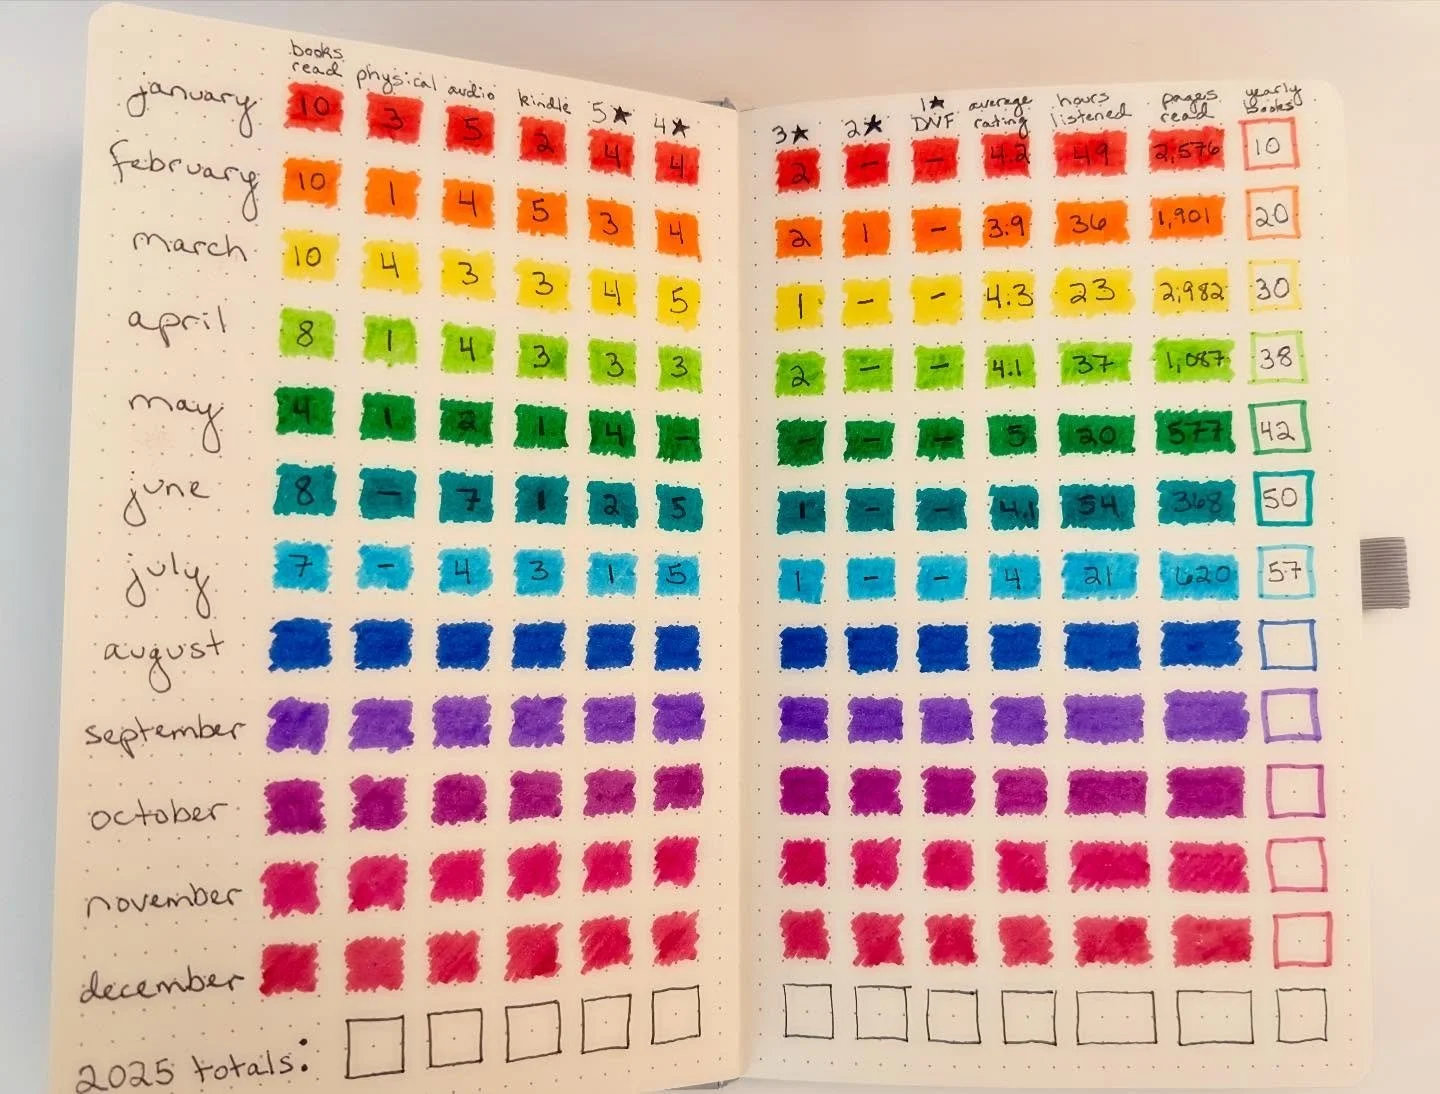 books read physical audio kindle 5★ 4★ 3★ 2★ 1★ DNF average rating hours listened pages read yearly books
january 10 3 5 2 4 4 2 - - 4.2 49 2,576 10
february 10 1 4 5 3 4 2 1 - 3.9 36 1,901 20
march 10 4 3 3 4 5 1 - - 4.3 23 2,982 30
april 8 1 4 3 3 3 2 - - 4.1 37 1,087 38
may 4 1 2 1 4 - - - - 5 20 577 42
june 8 - 7 1 2 5 1 - - 4.1 54 368 50
july 7 - 4 3 1 5 1 - - 4 21 620 57
august
september
october
november
december
2025 totals: